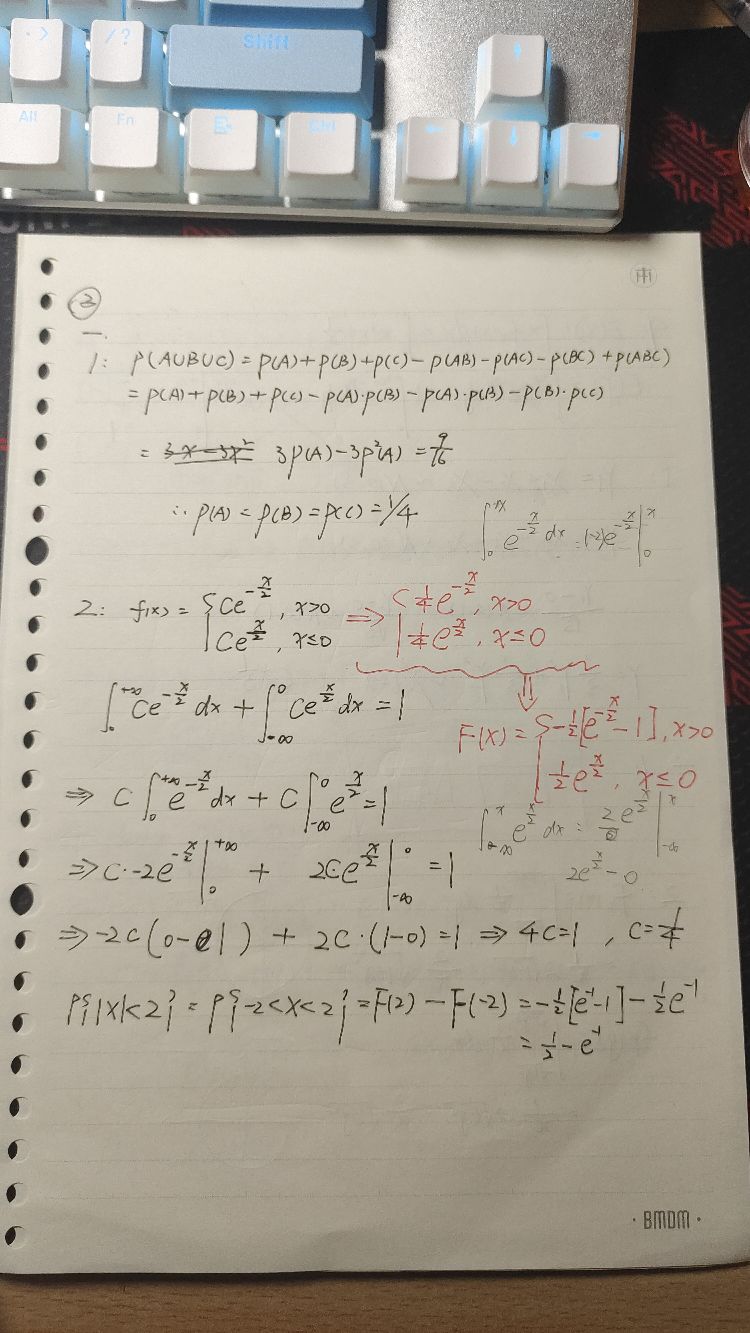 . >
/ ?
Shift
Alt
Fn
Ctrl
雨
②
一.
1: P(A∪B∪C) = P(A)+P(B)+P(C)-P(AB)-P(AC)-P(BC)+P(ABC)
= P(A)+P(B)+P(C)-P(A)·P(B)-P(A)·P(B)-P(B)·P(C)
= 3x-3x² 3P(A)-3P²(A) = 9/16
∴ P(A) = P(B) = P(C) = 1/4
∫₀^{+x} e^{-x/2} dx = (-2)e^{-x/2} |₀^x
2: f(x) = { Ce^{-x/2}, x>0 ⇒ { 1/4 e^{-x/2}, x>0
Ce^{x/2}, x≤0 1/4 e^{x/2}, x≤0
∫₀^{+∞} Ce^{-x/2} dx + ∫_{-∞}^0 Ce^{x/2} dx = 1
⇓
F(x) = { -1/2[e^{-x/2}-1], x>0
1/2 e^{x/2}, x≤0
⇒ C ∫₀^{+∞} e^{-x/2} dx + C ∫_{-∞}^0 e^{x/2} = 1
∫_{-∞}^x e^{x/2} dx = 2e^{x/2} |_{-∞}^x
2e^{x/2} - 0
⇒ C·-2e^{-x/2} |₀^{+∞} + 2Ce^{x/2} |_{-∞}^0 = 1
⇒ -2C(0-1) + 2C·(1-0) = 1 ⇒ 4C=1, C=1/4
P{|X|<2} = P{-2<X<2} = F(2) - F(-2) = -1/2[e^{-1}-1] - 1/2 e^{-1}
= 1/2 - e^{-1}
· BMDM ·